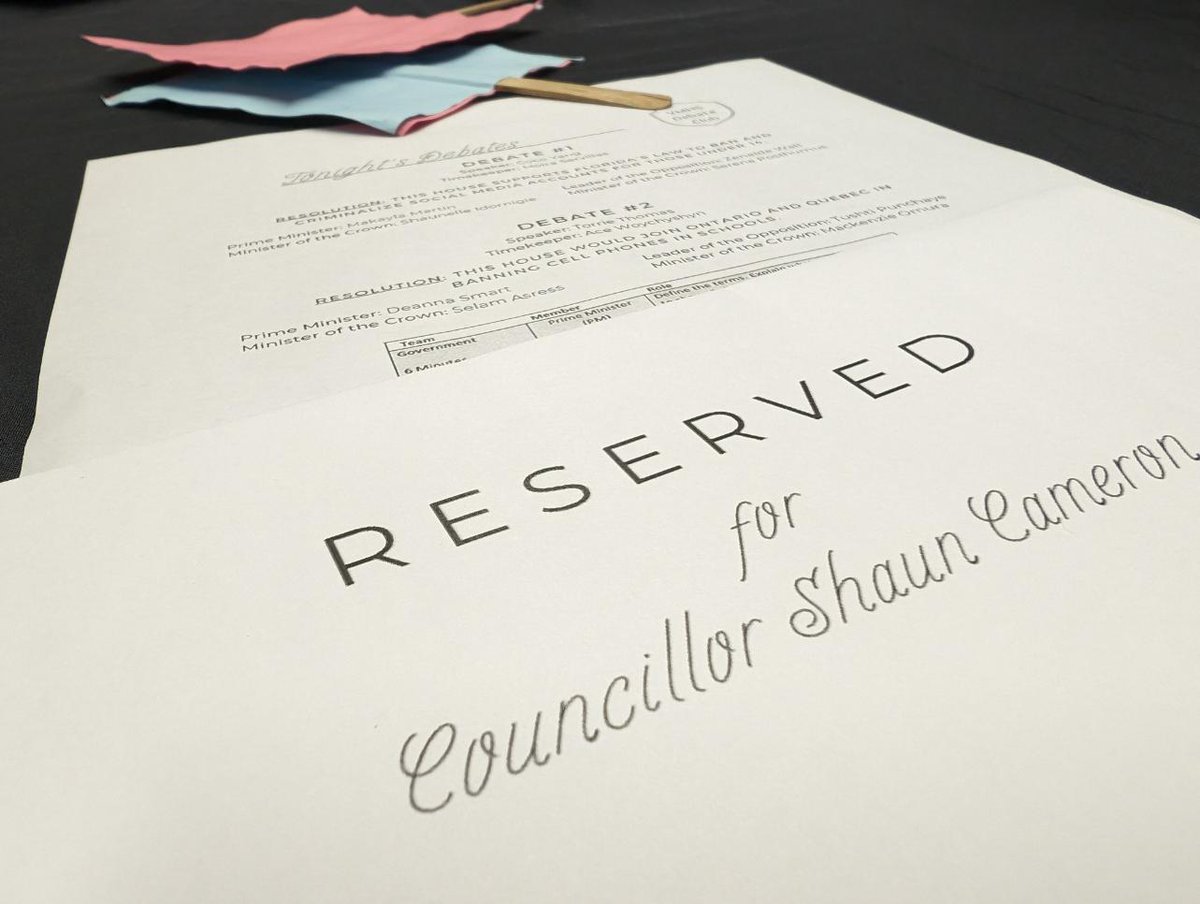 Debate
Club
Tonight's Debates
DEBATE #1
Speaker:
Timekeeper:
RESOLUTION: THIS HOUSE SUPPORTS FLORIDA'S LAW TO BAN AND
CRIMINALIZE SOCIAL MEDIA ACCOUNTS FOR THOSE UNDER 14
Prime Minister: Makayla Martin
Minister of the Crown: Shaunelle Idornigie
Leader of the Opposition: Zenette Wall
Minister of the Crown: Sarena Posthumus
DEBATE #2
Speaker: Torrie Thomas
Timekeeper: Ace Woychyshyn
RESOLUTION: THIS HOUSE WOULD JOIN ONTARIO AND QUEBEC IN
BANNING CELL PHONES IN SCHOOLS
Prime Minister: Deanna Smart
Minister of the Crown: Selam Asress
Leader of the Opposition: Tushti Punchaye
Minister of the Crown: Mackenzie Omura
Team Member Role
Government Prime Minister Define the terms. Explain
(PM)
6 Minutes
RESERVED
for
Councillor Shaun Cameron